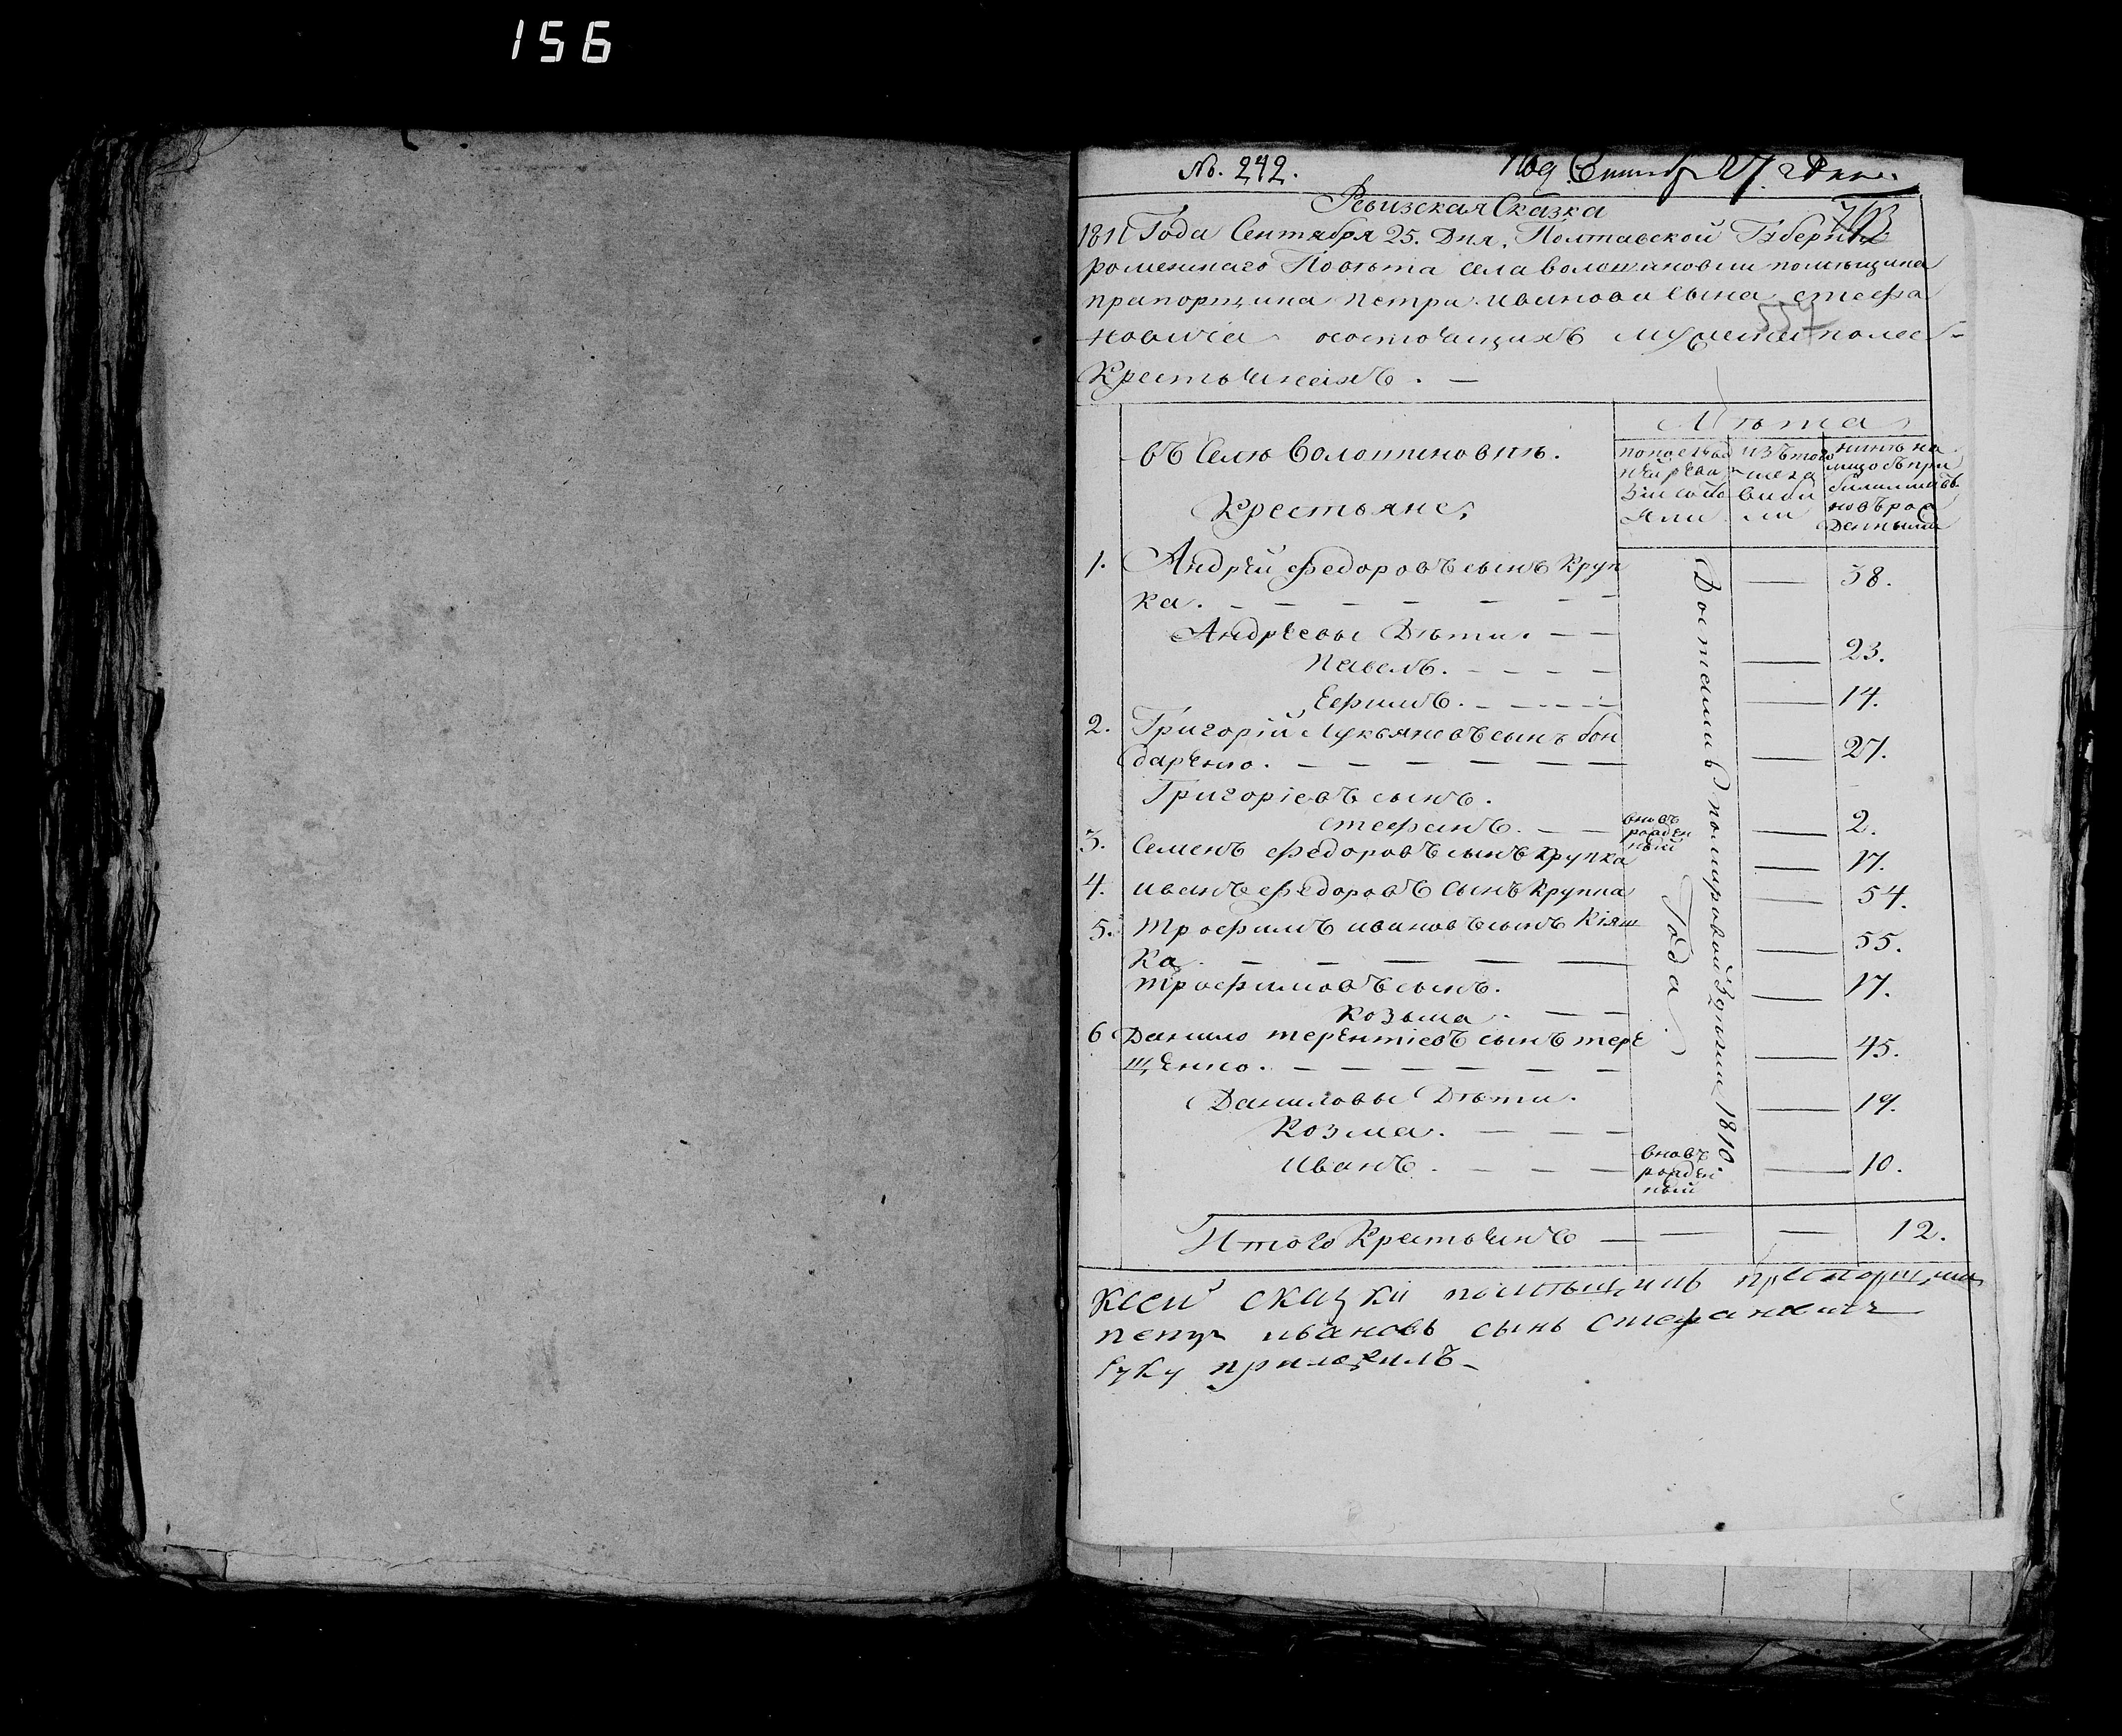 156
№. 242. Под. Сентяб 27. Дня.
Ревизская Сказка
1811 Года Сентября 25. Дня, Полтавской Губерніи
роменнаго Повѣта села волошиновки помѣщика
прапорщика петра иванова сына стефа
новича осостоящихъ мужеска полеъ
554
Крестьянехъ. —
въ Селѣ волошиновкѣ.
Крестьяне,
Лѣта
попослед
ней реви
зіи состо
яли
изътого
числа
выбы
ли
нынѣ на
лицо съ при
былыми и въ
новь рож
денными
1. Андрей федоровъ сынъ Круп
ка. — — — — — — 38.
Андреевы Дѣти. — —
павелъ. — — — — 23.
Ефимъ. — — — — 14.
2. Григорій Лукьяновъ сынъ бон
даренко. — — — — — — 27.
Григоріевъ сынъ.
стефанъ. — — вновь рожден ный — 2.
3. Семенъ федоровъ сынъ Крупка — 17.
4. иванъ федоровъ сынъ Крупка — 54.
5. трофимъ ивановъ сынъ Кіяш
Ка. — — — — — 55.
трофимовъ сынъ.
Козьма. — — 17.
6 Данило терентіевъ сынъ тере
щенко. — — — — — — 45.
Даниловы Дѣти.
Козма. — — — 19.
иванъ. — — — — вновь рожден ный — 10.
Года.
Итого Крестьянъ — — — 12.
ксей сказки помѣщикъ прапорщикъ
петръ ивановъ сынъ стефановичъ
руку приложилъ